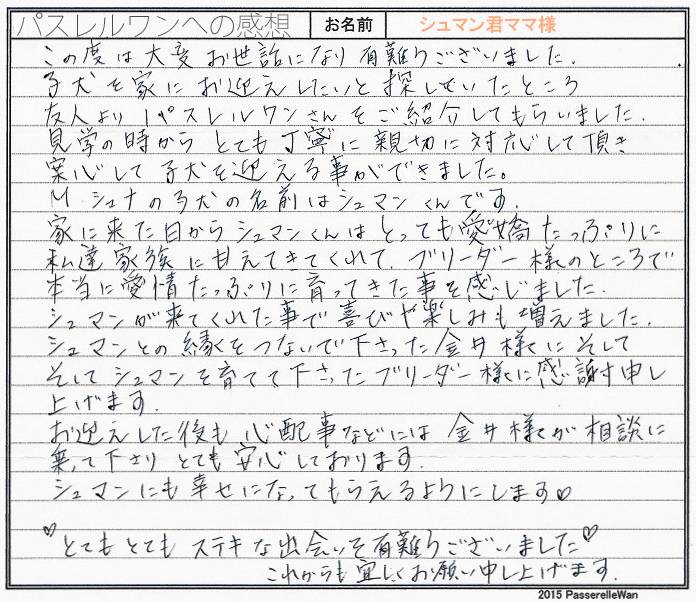 パスレルワンへの感想 お名前 シュマン君ママ様
この度は大変お世話になり有難うございました.
子犬を家にお迎えしたいと探していたところ
友人よりパスレルワンさんをご紹介してもらいました.
見学の時からとても丁寧に親切に対応して頂き
安心して子犬を迎える事ができました。
M.シュナの子犬の名前はシュマンくんです.
家に来た日からシュマンくんはとっても愛嬌たっぷりに
私達家族に甘えてきてくれて.ブリーダー様のところで
本当に愛情たっぷりに育ってきた事を感じました.
シュマンが来てくれた事で喜びや楽しみも増えました.
シュマンとの縁をつないで下さった金井様にそして
そしてシュマンを育てて下さったブリーダー様に感謝申し
上げます.
お迎えした後も心配事などには金井様が相談に
乗って下さりとても安心しております.
シュマンにも幸せになってもらえるようにします♡
♡とてもとてもステキな出会いを有難うございました♡
これからも宜しくお願い申し上げます.
2015 PasserelleWan